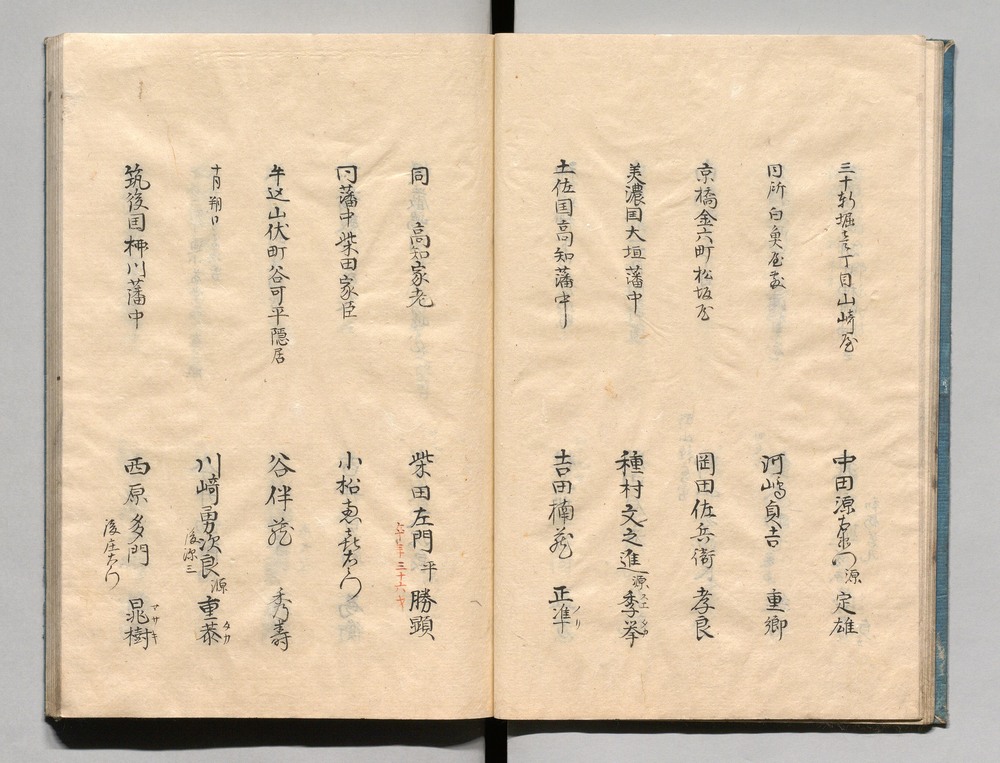 三十軒堀壱丁目山崎屋 中田源右衛門 源 定雄
同所 白魚屋敷 河嶋貞吉 重郷
京橋金六町松坂屋 岡田佐兵衛 孝良
美濃国大垣藩中 種村文之進 源 季挙 スエ タカ
土佐国高知藩中 吉田楠蔵 正準 ノリ
同 高知家老 柴田左門 平 勝顕
三十六才
同藩中柴田家臣 小松恵喜右衛門
牛込山伏町谷可平隠居 谷伴蔵 秀寿
十月朔日 川崎勇次良 源 重恭 タカ
後源三
筑後国柳川藩中 西原多門 晁樹 マサキ
後庄右衛門